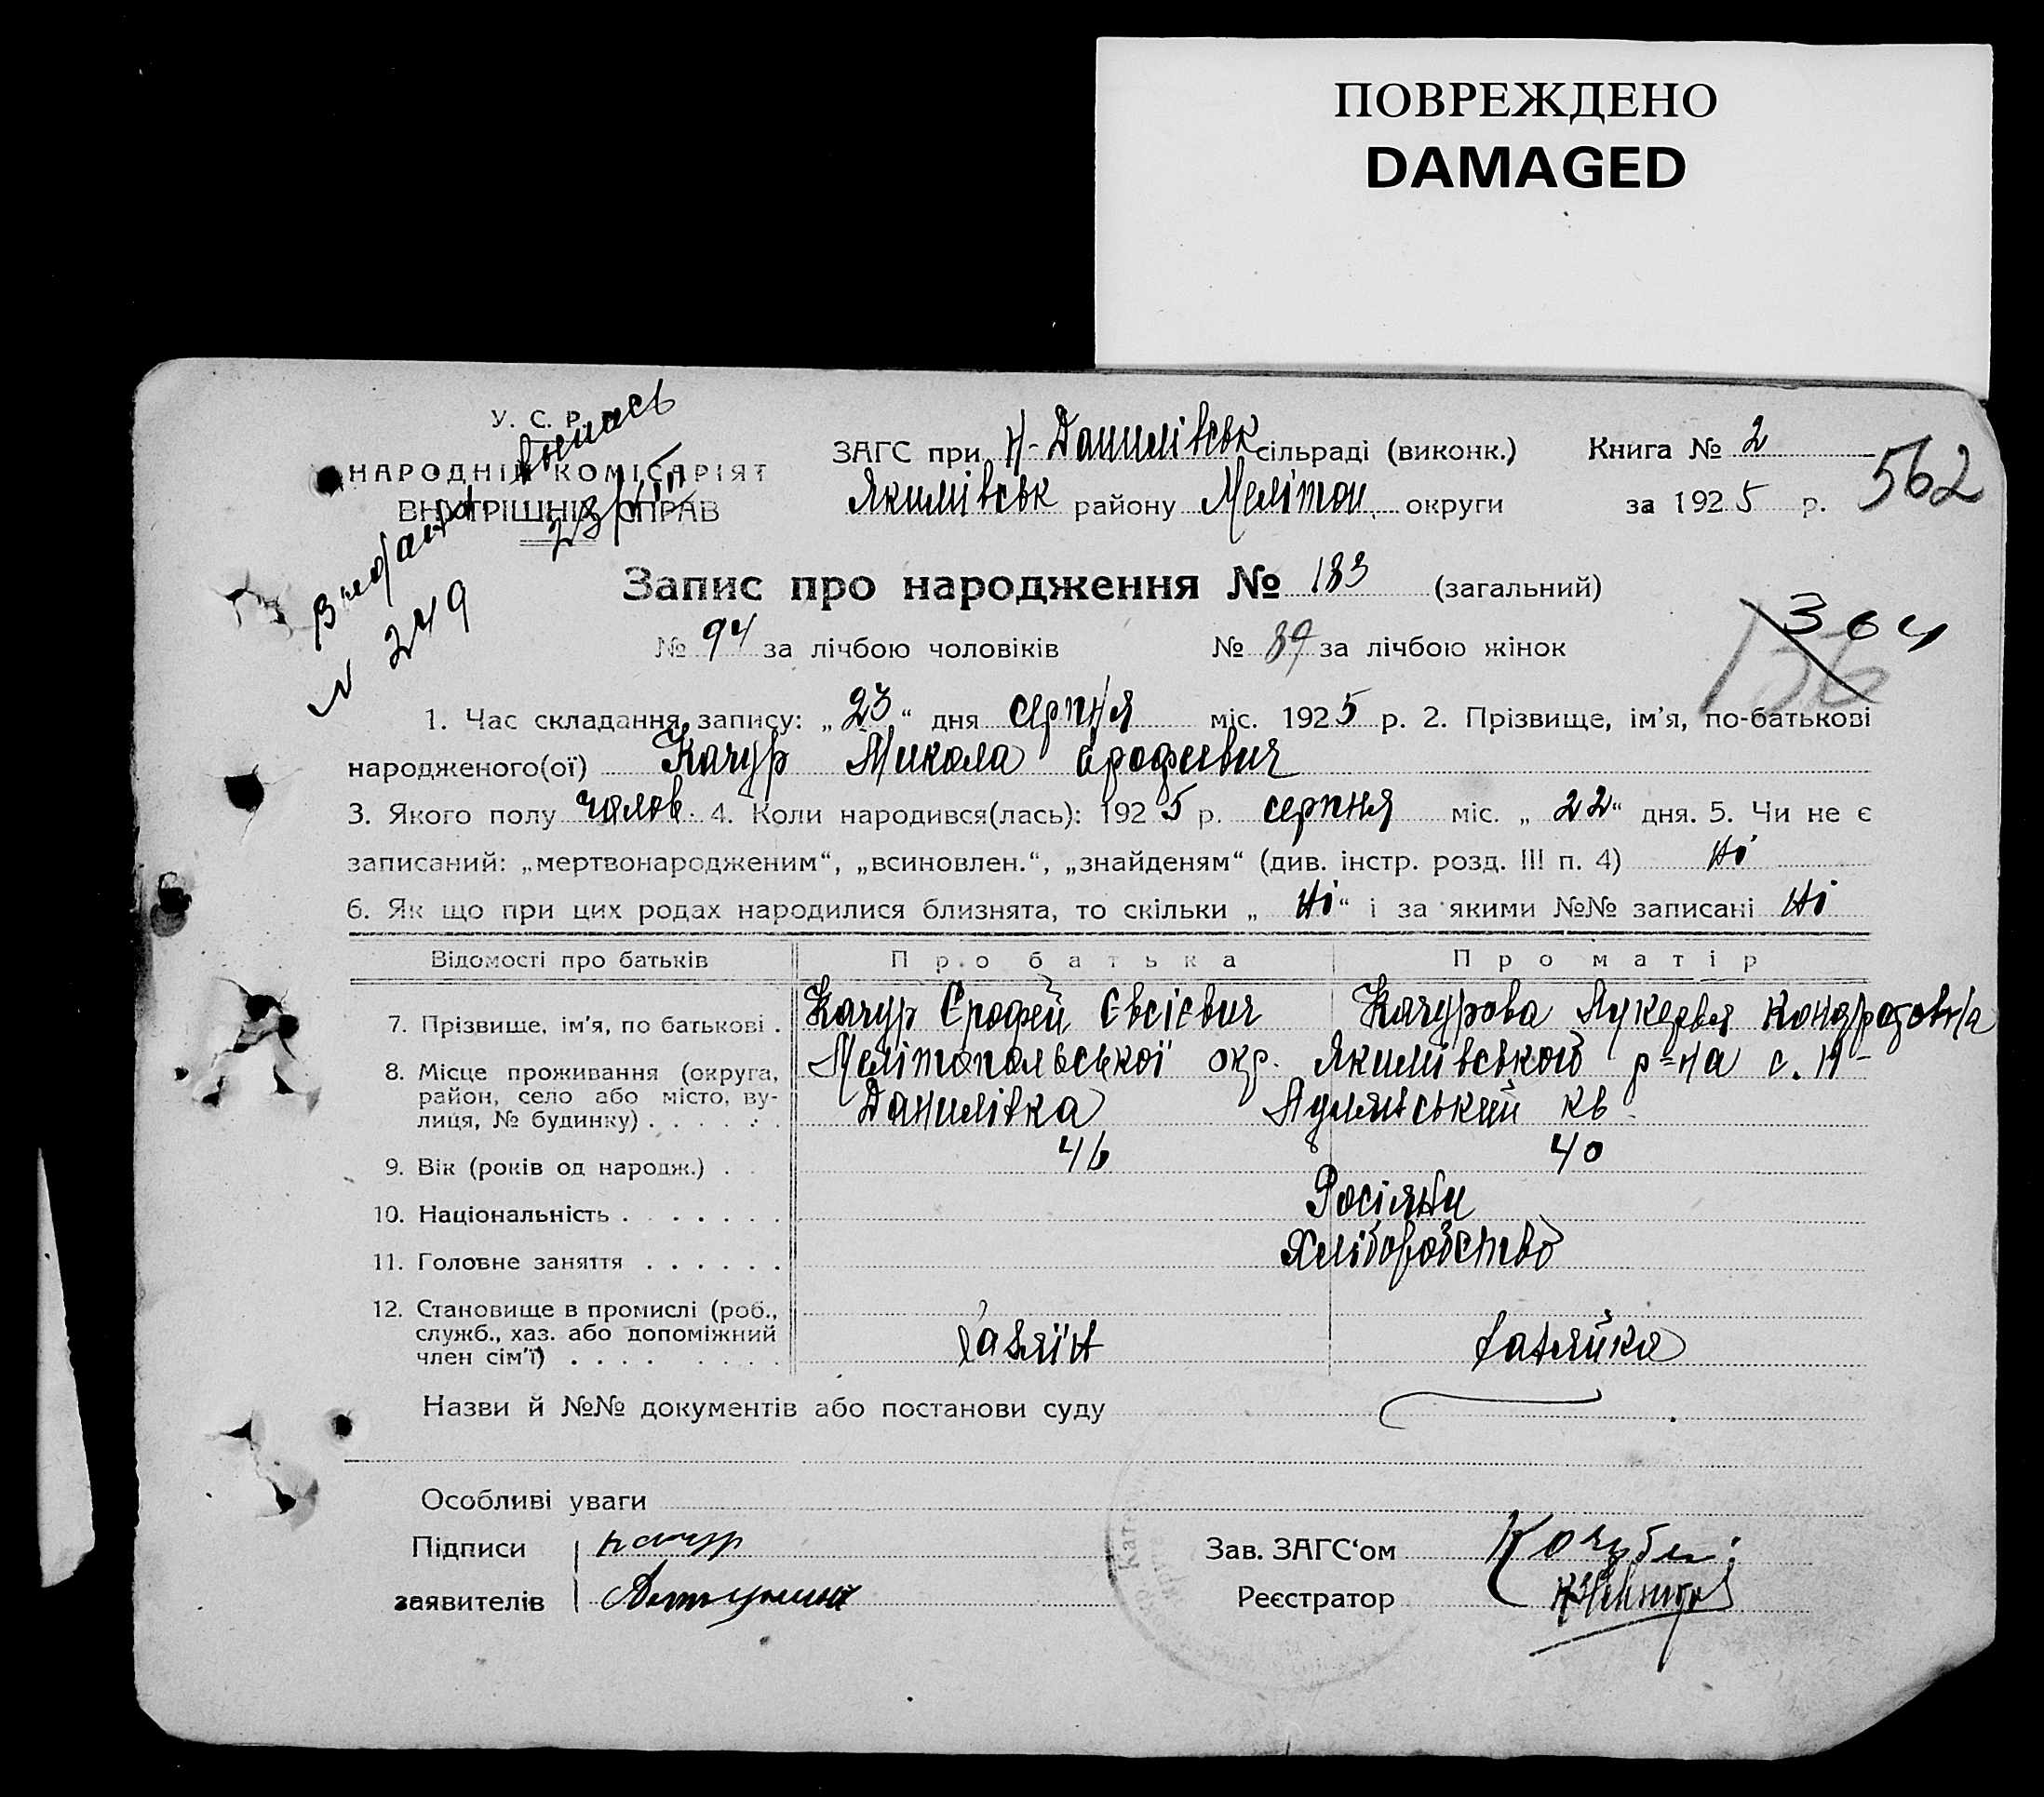 ПОВРЕЖДЕНО
DAMAGED
У. С. Р. Р.
НАРОДНІЙ КОМІСАРІЯТ
ВНУТРІШНІХ СПРАВ
№ 249
ЗАГС при Н-Данилівськ сільраді (виконк.) Книга № 2
Якимівськ району Меліտոп. округи за 1925 р. 562
Запис про народження № 183 (загальний)
364
№ 94 за лічбою чоловіків № 89 за лічбою жінок
156
1. Час складання запису: „23“ дня серпня міс. 1925 р. 2. Прізвище, ім’я, по-батькові
народженого(ої) Качур Микола Єрофеєвич
3. Якого полу чолов. 4. Коли народився(лась): 1925 р. серпня міс. „22“ дня. 5. Чи не є
записаний: „мертвонародженим“, „всиновлен.“, „знайденям“ (див. інстр. розд. III п. 4) Ні
6. Як що при цих родах народилися близнята, то скільки „Ні“ і за якими №№ записані Ні
Відомості про батьків Про батька Про матір
7. Прізвище, ім’я, по батькові . Качур Єрофей Євсієвич Качурова Лукерья Кондратовна
8. Місце проживання (округа, Мелітопольської окр. Якимівської р-на с. Н-
район, село або місто, ву- Данилівка кв
лиця, № будинку) . . . . . .
9. Вік (років од народж.) . 46 40
10. Національність . . . . . . . Росіяни
11. Головне заняття . . . . . . Хліборобство
12. Становище в промислі (роб.,
служб., хаз. або допоміжний
член сім’ї) . . . . . . . . хазяїн хазяйка
Назви й №№ документів або постанови суду
Особливі уваги
Підписи Качур Зав. ЗАГС‘ом Кочубей
заявителів Реєстратор